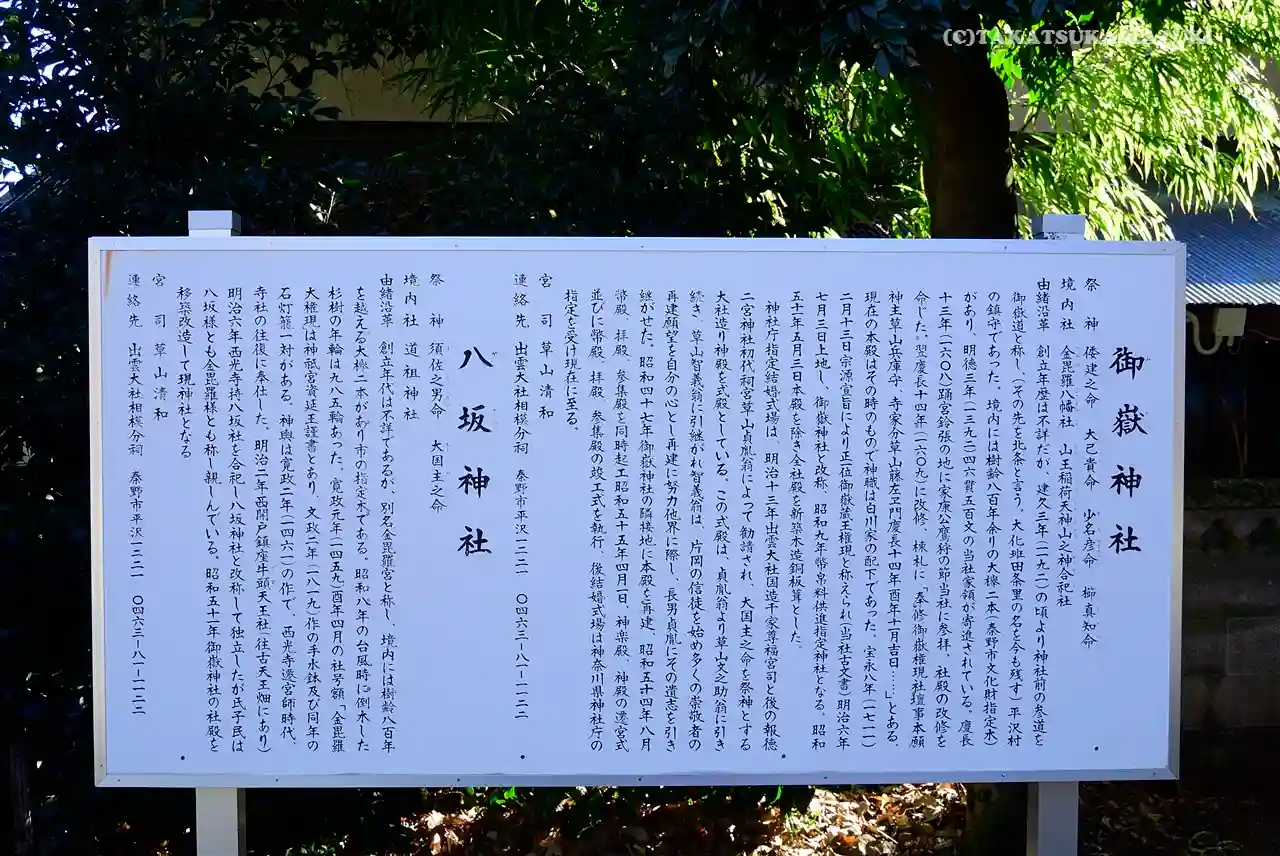 (C)TAKATSUKI
御嶽神社
祭　神　倭建之命　大己貴命　少名彦命　櫛真知命
境内社　金毘羅八幡社　山王稲荷天神山之神合祀社
由緒沿革　創立年歴は不詳だが、建久三年(一一九二)の頃より神社前の参道を
御嶽道と称し、(その先を北条と言う、大化班田条里の名を今も残す)平沢村
の鎮守であった。境内には樹齢八百年余りの大欅二本(秦野市文化財指定木)
があり、明徳三年(一三九二)四六貫五百文の当社家領が寄進されている。慶長
十三年(一六〇八)踊宮鈴張の地に家康公鷹狩の節当社に参拝、社殿の改修を
命じた。翌慶長十四年(一六〇九)に改修、棟札に「奉修御嶽権現社壇事本願
神主草山兵庫守、寺家分草山藤左ヱ門慶長十四年酉年十一月吉日……」とある。
現在の本殿はその時のもので神職は白川家の配下であった、宝永八年(一七一一)
二月十三日宗源宣旨により正一位御嶽蔵王権現と称えられ(当社古文書)明治六年
七月三日上地し、御嶽神社と改称、昭和九年幣帛料供進指定神社となる。昭和
五十一年五月三日本殿を除き全社殿を新築木造銅板葺とした。
神社庁指定結婚式場は、明治十三年出雲大社国造千家尊福宮司と後の報徳
二宮神社初代祠宮草山貞胤翁によって勧請され、大国主之命を祭神とする
大社造り神殿を式殿としている。この式殿は、貞胤翁より草山文之助翁に引き
続き、草山智義翁に引継がれ智義翁は、片岡の信徒を始め多くの崇敬者の
再建願望を自分の心とし再建に努力他界に際し、長男貞胤にその遺志を引き
継がせた。昭和四十七年御嶽神社の隣接地に本殿を再建、昭和五十四年八月
幣殿、拝殿、参集殿を同時起工昭和五十五年四月一日、神楽殿、神殿の遷宮式
並びに幣殿、拝殿、参集殿の竣工式を執行、後結婚式場は神奈川県神社庁の
指定を受け現在に至る。
宮　司　草山清和
連絡先　出雲大社相模分祠　秦野市平沢一二二一　〇四六三－八一－一一二二
八坂神社
祭　神　須佐之男命　大国主之命
境内社　道祖神社
由緒沿革　創立年代は不詳であるが、別名金毘羅宮と称し、境内には樹齢八百年
を越える大欅二本があり市の指定木である。昭和八年の台風時に倒木した
杉樹の年輪は九八五輪あった、寛政元年(一四五九)酉年四月の社号額「金毘羅
大権現は神祇宮資延王謹書とあり、文政二年(一八一九)作の手水鉢及び同年の
石灯籠一対がある。神輿は寛政二年(一四六一)の作で、西光寺遷宮師時代、
寺社の往復に奉仕した。明治二年西開戸鎮座牛頭天王社(往古天王畑にあり)
明治六年西光寺持八坂社を合祀し八坂神社と改称して独立したが氏子民は
八坂様とも金毘羅様とも称し親しんでいる。昭和五十一年御嶽神社の社殿を
移築改造して現神社となる
宮　司　草山清和
連絡先　出雲大社相模分祠　秦野市平沢一二二一　〇四六三－八一－一一二二